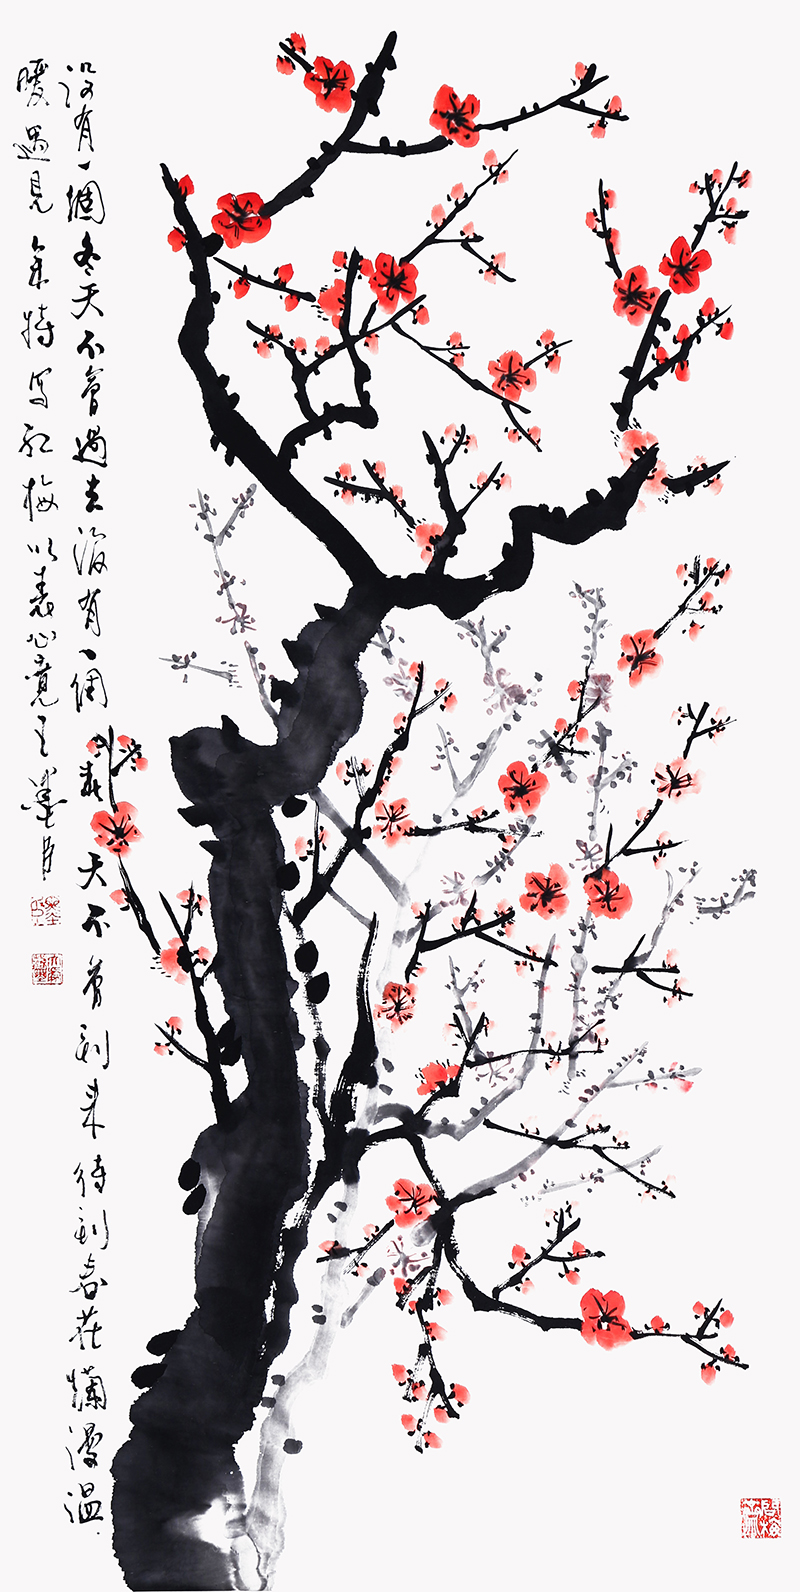 没有一個冬天不會過去没有一個春天不會到来待到春花爛漫温
暖遇見余特寫紅梅以表心意王墨